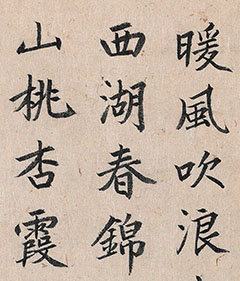 暖風吹浪
西湖春錦
山桃杏霞